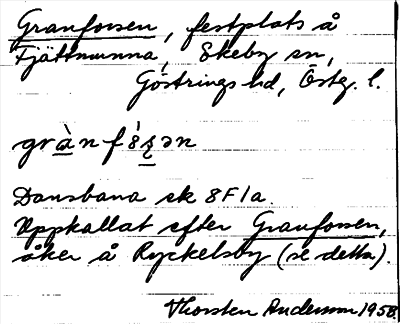 Granforsen, festplats å
Fjättmunna, Ekeby sn,
Göstrings hd, Östg. l.
Dansbana ek 8F1a.
Uppkallat efter Granforsen,
åker å Ryckelsby (se detta).
Thorsten Andersson 1958.